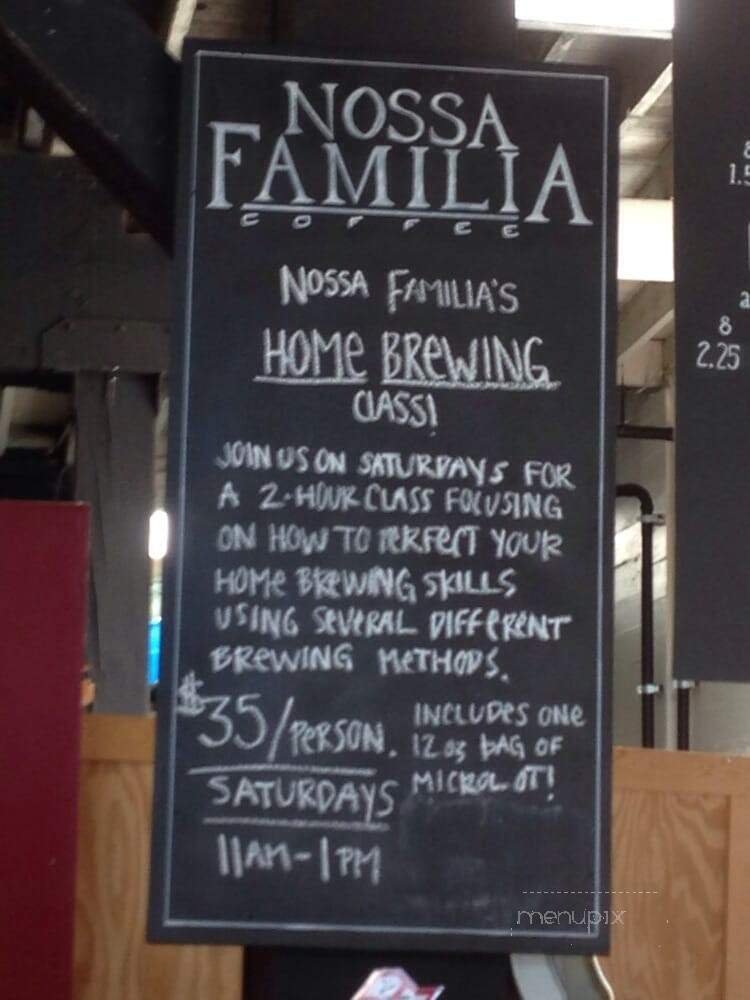 NOSSA
FAMILIA
COFFEE
NOSSA FAMILIA'S
HOME BREWING
CLASS!
JOIN US ON SATURDAYS FOR
A 2-HOUR CLASS FOCUSING
ON HOW TO PERFECT YOUR
HOME BREWING SKILLS
USING SEVERAL DIFFERENT
BREWING METHODS.
$35/PERSON.
INCLUDES ONE
12 oz BAG OF
MICROLOT!
SATURDAYS
11AM-1PM
8
2.25
menupix